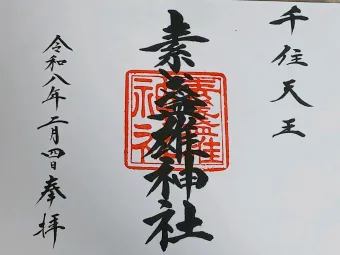 千住天王
素盞雄神社
令和八年二月四日奉拝
素盞雄神社